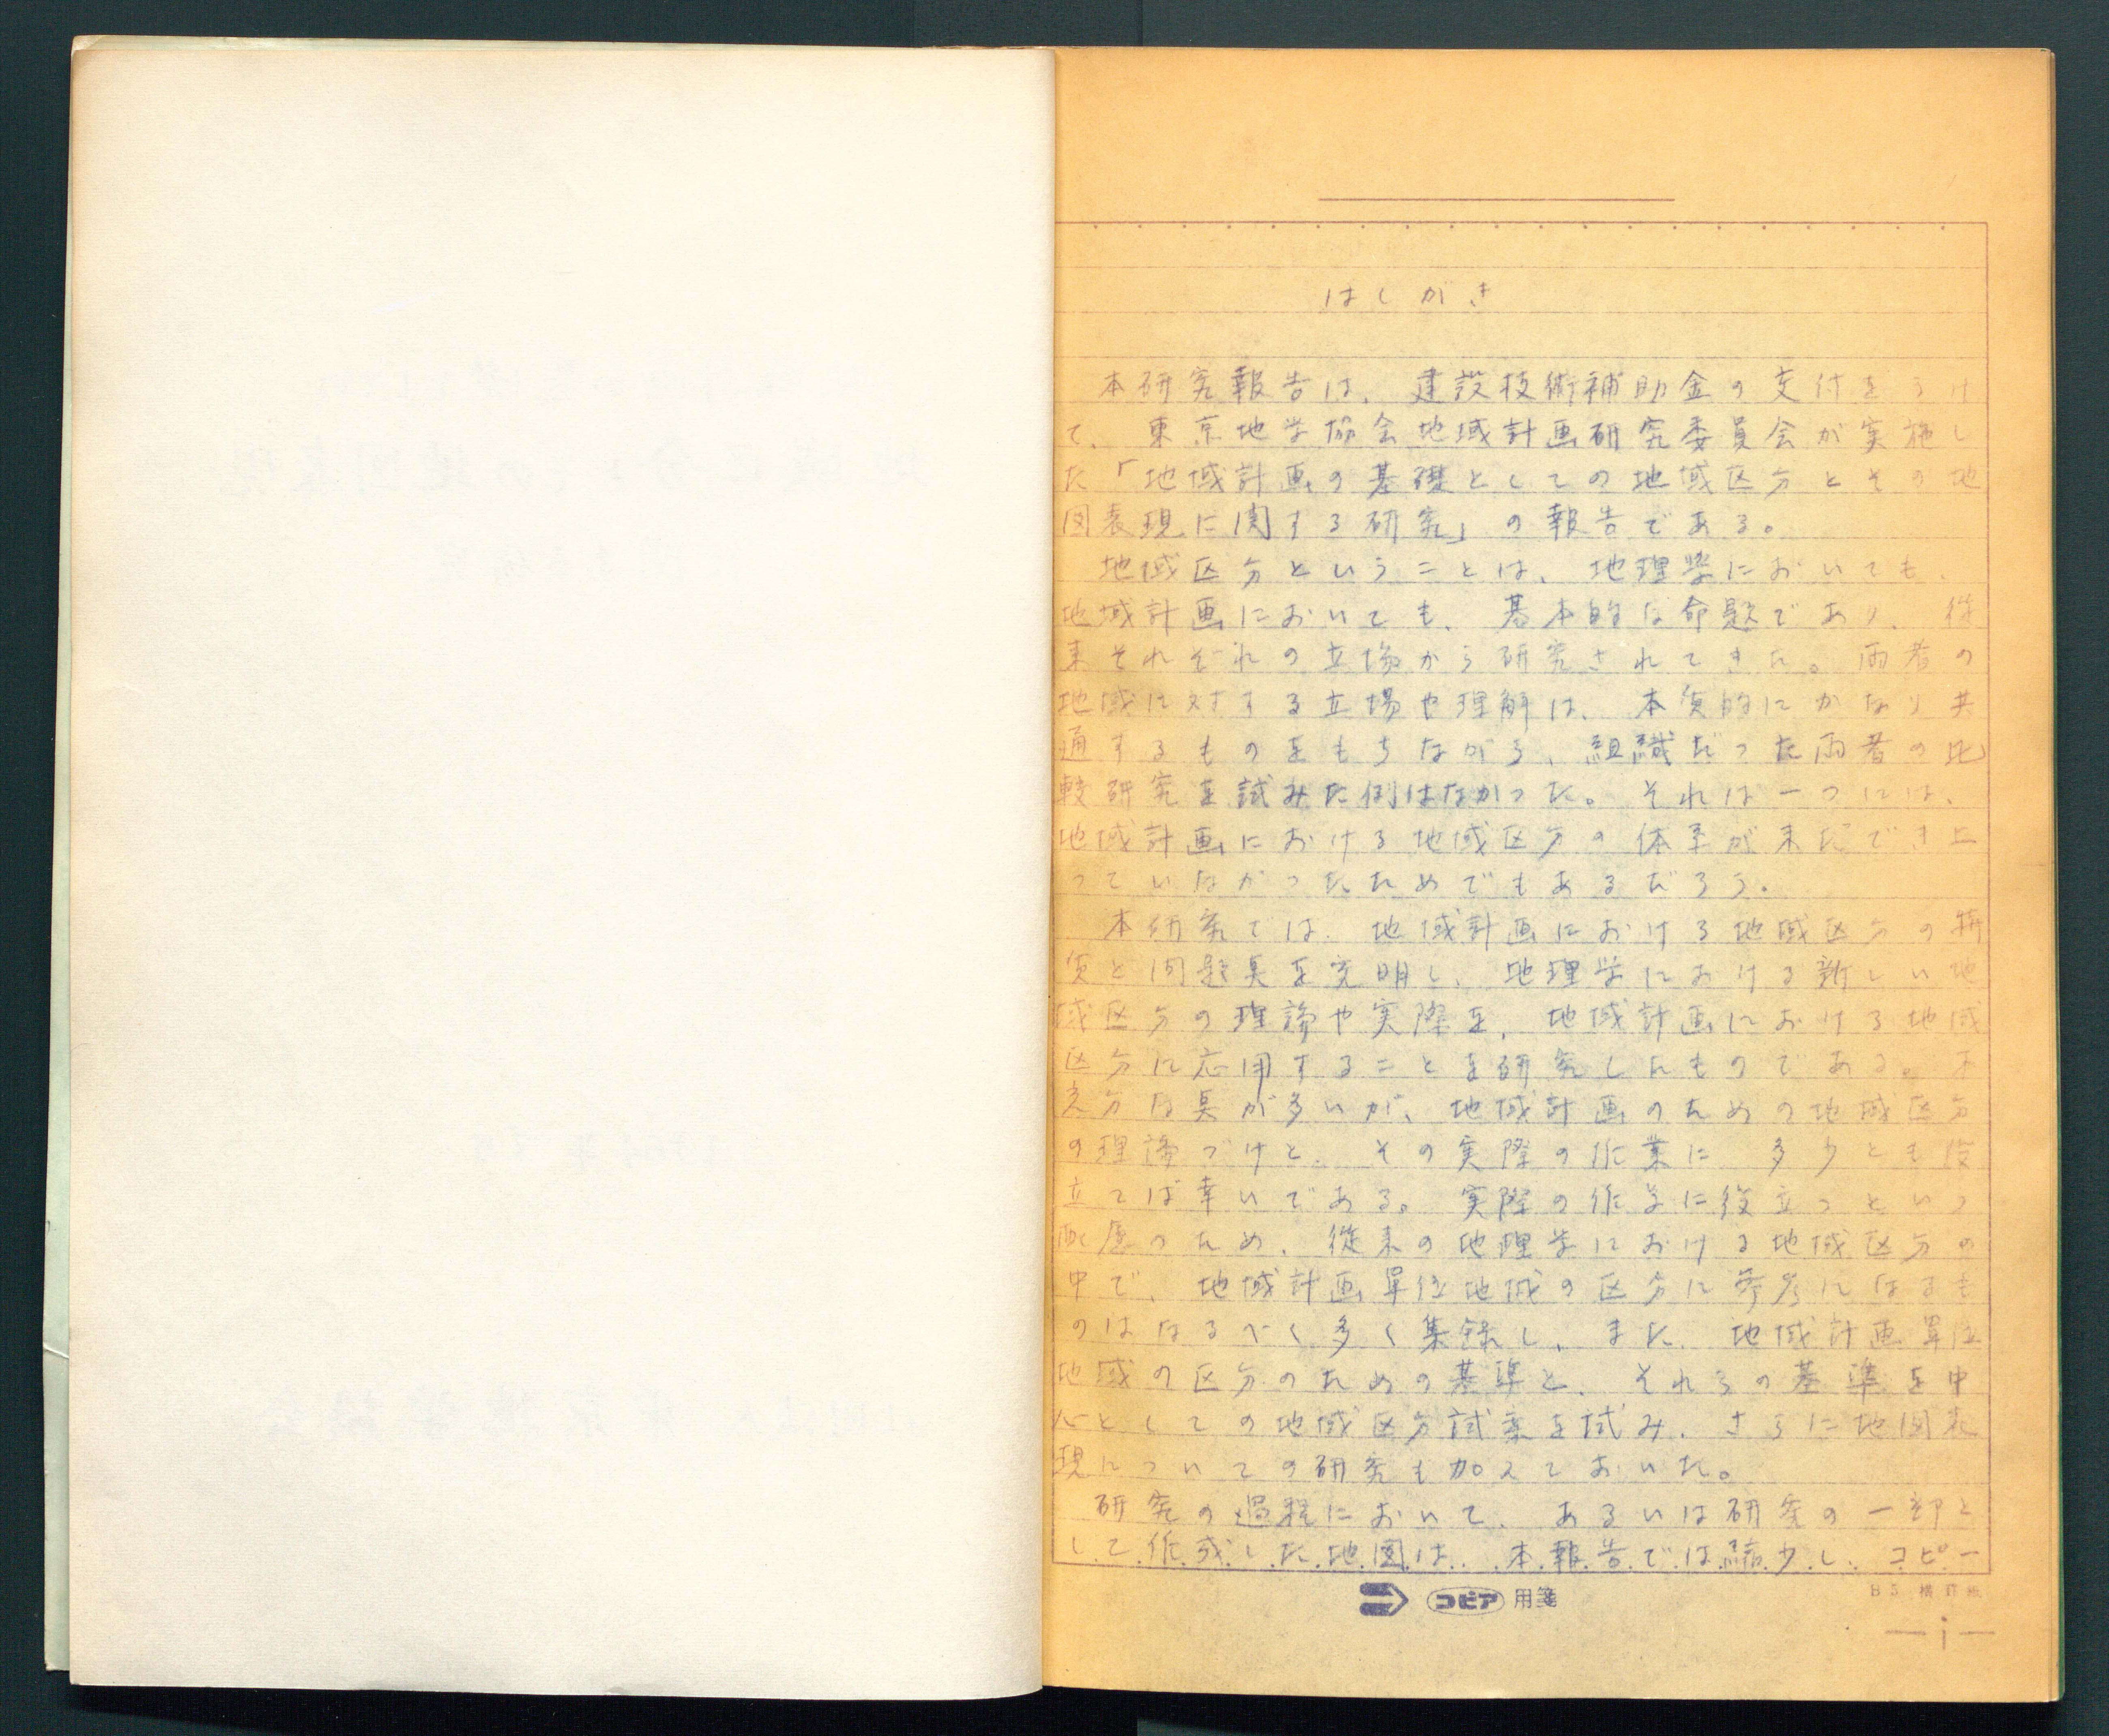 はしがき
本研究報告は、建設技術補助金の交付をうけ
て、東京地学協会地域計画研究委員会が実施し
た「地域計画の基礎としての地域区分とその地
図表現に関する研究」の報告である。
地域区分ということは、地理学においても、
地域計画においても、基本的な命題であり、従
来それぞれの立場から研究されてきた。両者の
地域に対する立場や理解は、本質的にかなり共
通するものをもちながら、組織だった両者の比
較研究を試みた例はなかった。それは一つには、
地域計画における地域区分の体系が未だでき上
っていなかったためでもあるだろう。
本研究では、地域計画における地域区分の特
質と問題点を究明し、地理学における新しい地
域区分の理論や実際を、地域計画における地域
区分に応用することを研究したものである。不
充分な点が多いが、地域計画のための地域区分
の理論づけと、その実際の作業に多少とも役
立てば幸いである。実際の作業に役立つといつ
配慮のため、従来の地理学における地域区分の
中で、地域計画単位地域の区分に参考になるも
のはなるべく多く集録し、また、地域計画単位
地域の区分のための基準と、それらの基準を中
心としての地域区分試案を試み、さらに地図表
現についての研究も加えておいた。
研究の過程において、あるいは研究の一部と
して作成した地図は、本報告では縮少し、コピー
コピア 用箋
B5 横罫紙
— i —